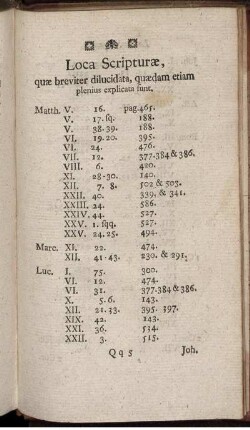 Loca Scripturæ,
quæ breviter dilucidata, quædam etiam
plenius explicata sunt.
Matth. V. 16. pag.465.
V. 17.sq. 188.
V. 38-39. 188.
VI. 19.20. 395.
VI. 24. 476.
VII. 12. 377.384 & 386.
VIII. 6. 420.
XI. 28-30. 140.
XII. 7. 8. 502 & 503.
XXII. 40. 339. & 341.
XXIII. 24. 586.
XXIV. 44. 527.
XXV. 1. sqq. 527.
XXV. 24.25. 494.
Marc. XI. 22. 474.
XII. 41-43. 230. & 291.
Luc. I. 75. 300.
VI. 12. 474.
VI. 31. 377.384 & 386.
X. 5.6. 143.
XII. 21.33. 395. 397.
XIX. 42. 143.
XXI. 36. 534.
XXII. 3. 515.
Qq 5 Joh.